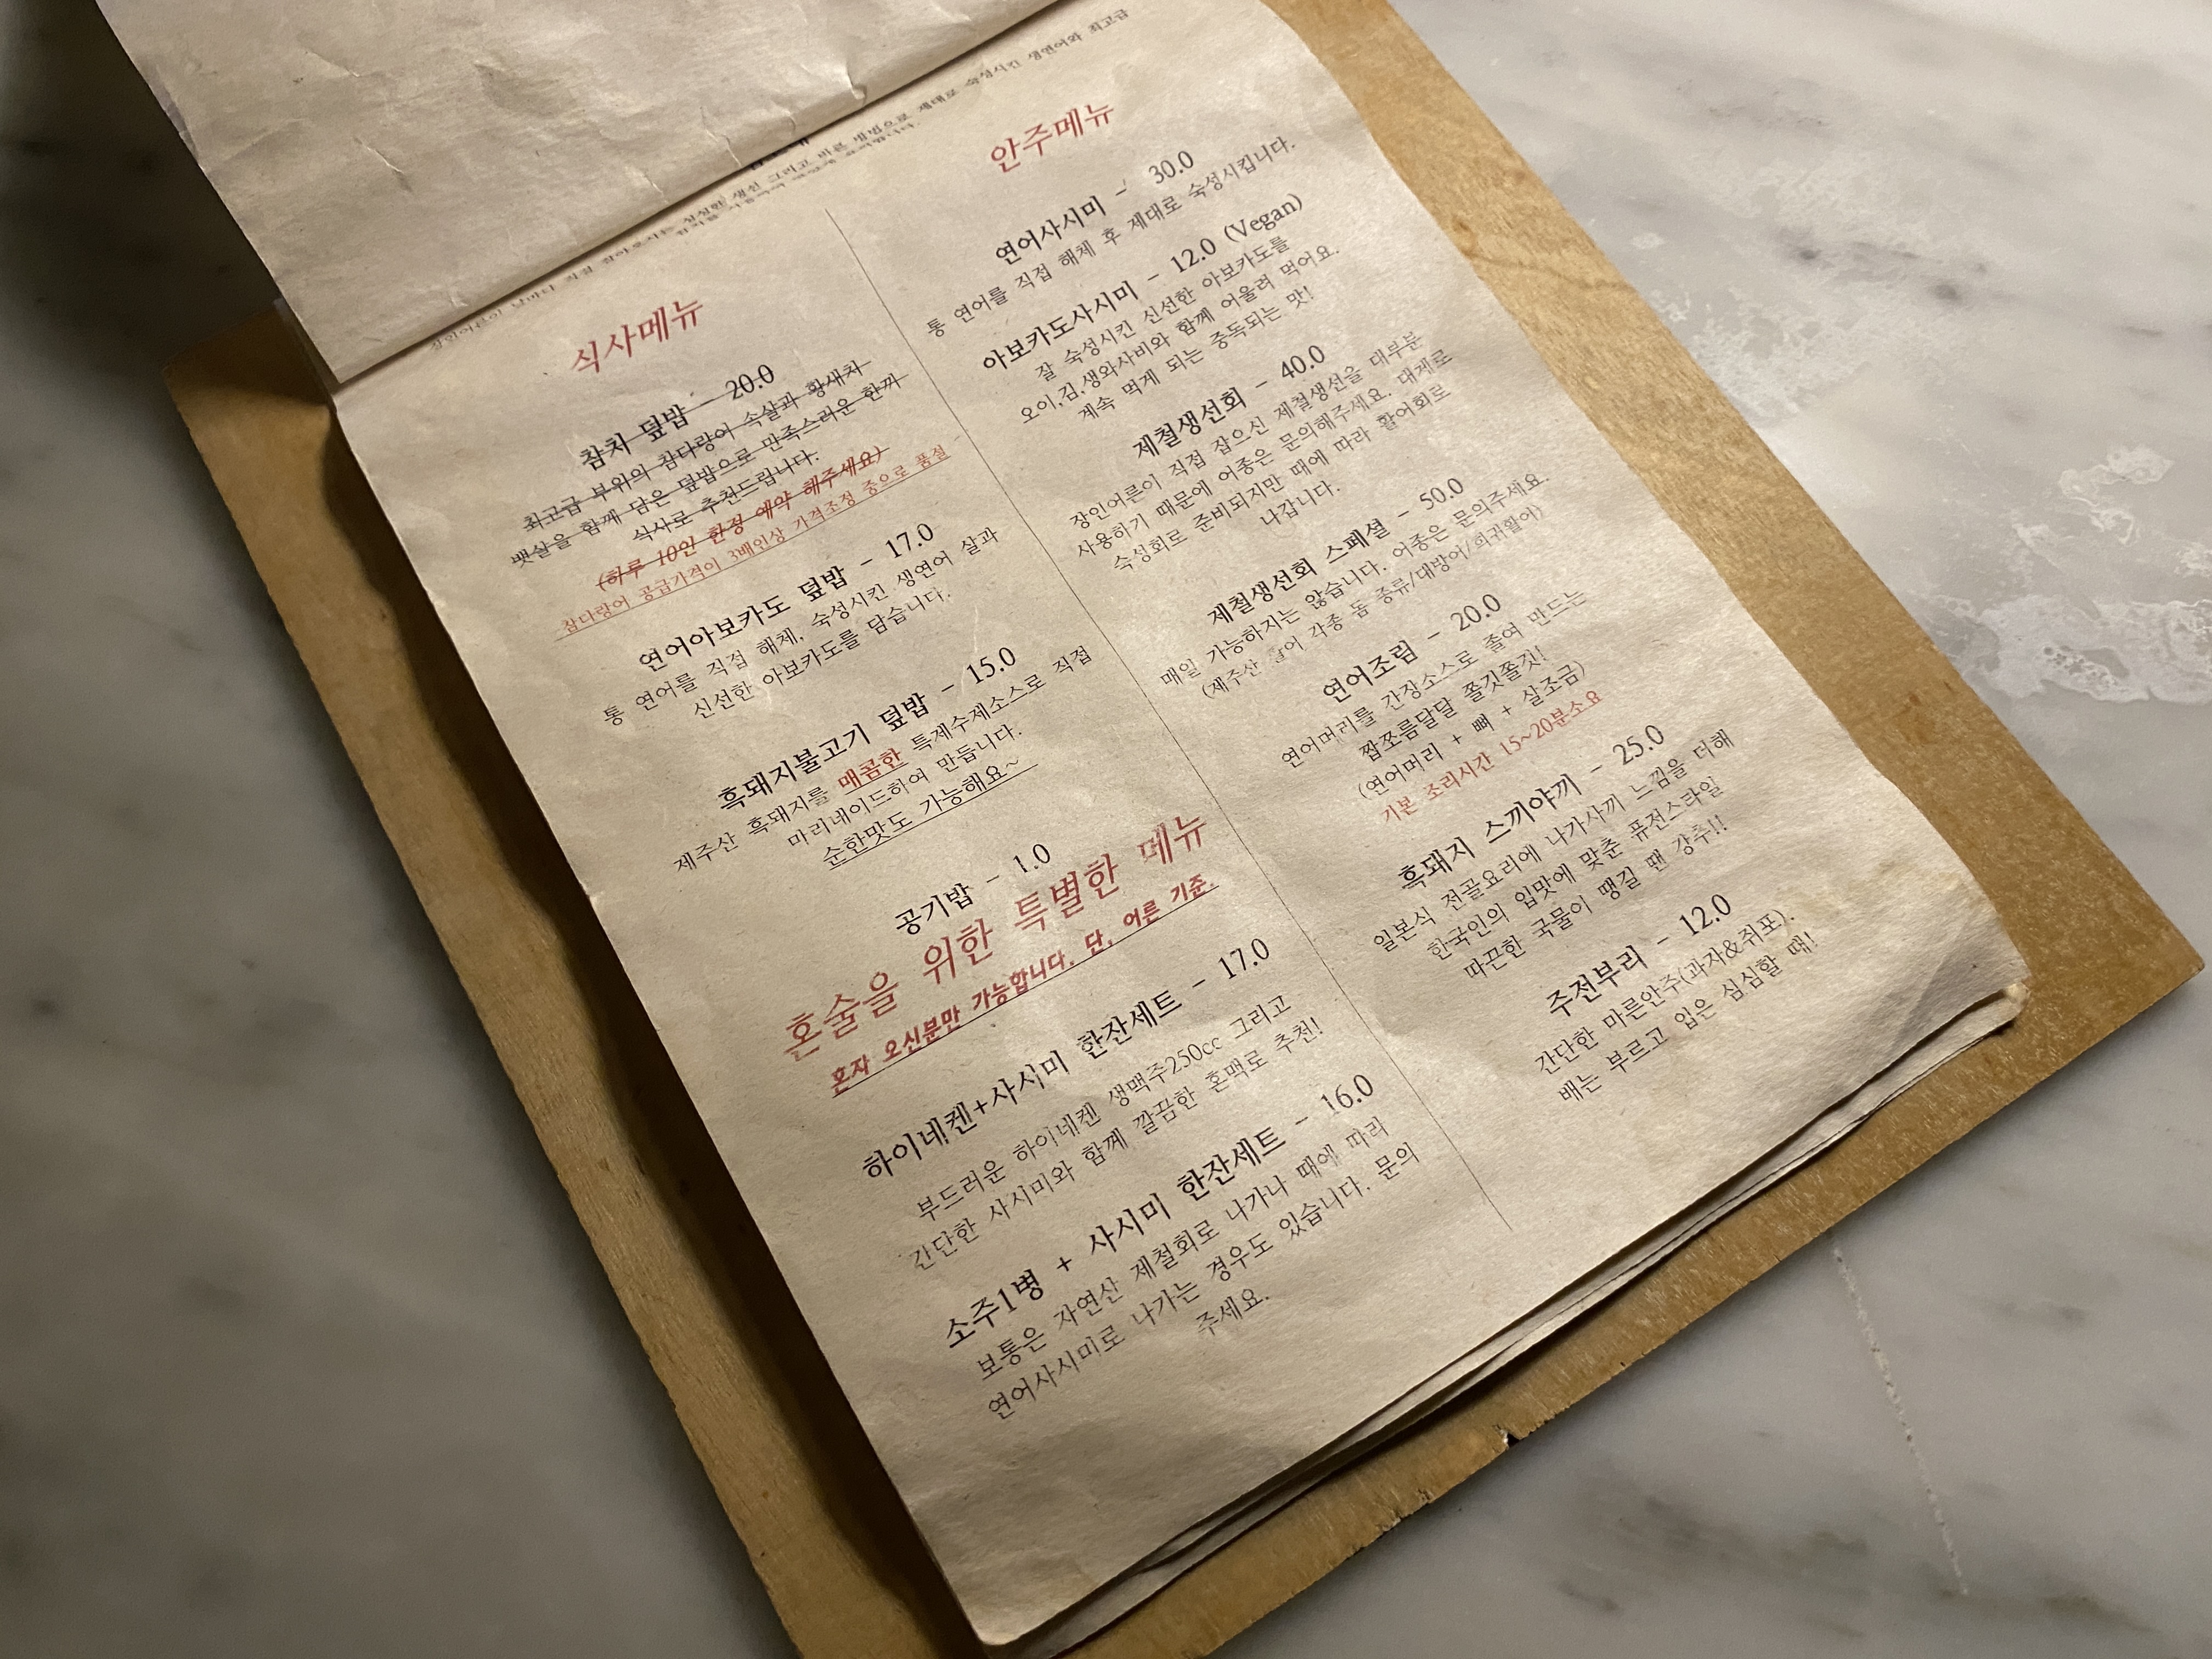 생선 그리고 바른 방법으로 제대로 숙성시킨 생연어와 최고급
식사메뉴
참치 덮밥 - 20.0
최고급 부위의 참다랑어 속살과 황새치
뱃살을 함께 담은 덮밥으로 만족스러운 한끼
식사로 추천드립니다.
(하루 10인 한정 예약 해주세요)
참다랑어 공급가격이 3배인상 가격조정 중으로 품절
연어아보카도 덮밥 - 17.0
통 연어를 직접 해체, 숙성시킨 생연어 살과
신선한 아보카도를 담습니다.
흑돼지불고기 덮밥 - 15.0
제주산 흑돼지를 매콤한 특제수제소스로 직접
마리네이드하여 만듭니다.
순한맛도 가능해요~
공기밥 - 1.0
혼술을 위한 특별한 메뉴
혼자 오신분만 가능합니다. 단, 어른 기준.
하이네켄+사시미 한잔세트 - 17.0
부드러운 하이네켄 생맥주250cc 그리고
간단한 사시미와 함께 깔끔한 혼맥로 추천!
소주1병 + 사시미 한잔세트 - 16.0
보통은 자연산 제철회로 나가나 때에 따라
연어사시미로 나가는 경우도 있습니다. 문의
주세요.
안주메뉴
연어사시미 - 30.0
통 연어를 직접 해체 후 제대로 숙성시킵니다.
아보카도사시미 - 12.0 (Vegan)
잘 숙성시킨 신선한 아보카도를
오이,김,생와사비와 함께 어울려 먹어요.
계속 먹게 되는 중독되는 맛!
제철생선회 - 40.0
장인어른이 직접 잡으신 제철생선을 대부분
사용하기 때문에 어종은 문의해주세요. 대체로
숙성회로 준비되지만 때에 따라 활어회로
나갑니다.
제철생선회 스페셜 - 50.0
매일 가능하지는 않습니다. 어종은 문의주세요.
(제주산 각종 돔 종류/대방어/희귀활어)
연어조림 - 20.0
연어머리를 간장소스로 졸여 만드는
짭쪼름달달 쫄깃쫄깃!
(연어머리 + 뼈 + 살조금)
기본 조리시간 15~20분소요
흑돼지 스끼야끼 - 25.0
일본식 전골요리에 나가사끼 느낌을 더해
한국인의 입맛에 맞춘 퓨전스타일
따끈한 국물이 땡길 땐 강추!!
주전부리 - 12.0
간단한 마른안주(과자&쥐포).
배는 부르고 입은 심심할 때!